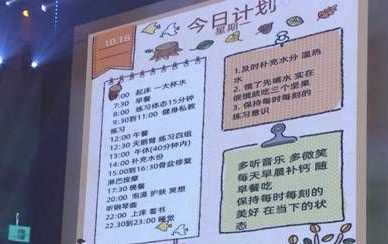 10.16
今日计划
星期一
7:00 起床 一大杯水
7:30 早餐
8:00 练习体态15分钟
9:30到11:00 健身私教
练习
12:00 午餐
12:30 天鹅臂 练习四组
13:00 午休(40分钟内)
14:00 补充水份
15:00到16:30骨盆修复
淋巴按摩
17:30 晚餐
20:00 泡澡 护肤 冥想
听钢琴曲
22:00 上床 看书
22:30到23:00 睡觉
1.及时补充水分 温热
水
2. 饿了先喝水 实在
很饿就吃三个坚果
3. 保持每时每刻的
练习意识
多听音乐 多微笑
每天早晨补钙 随
早餐吃
保持每时每刻的
美好 在当下的状
态